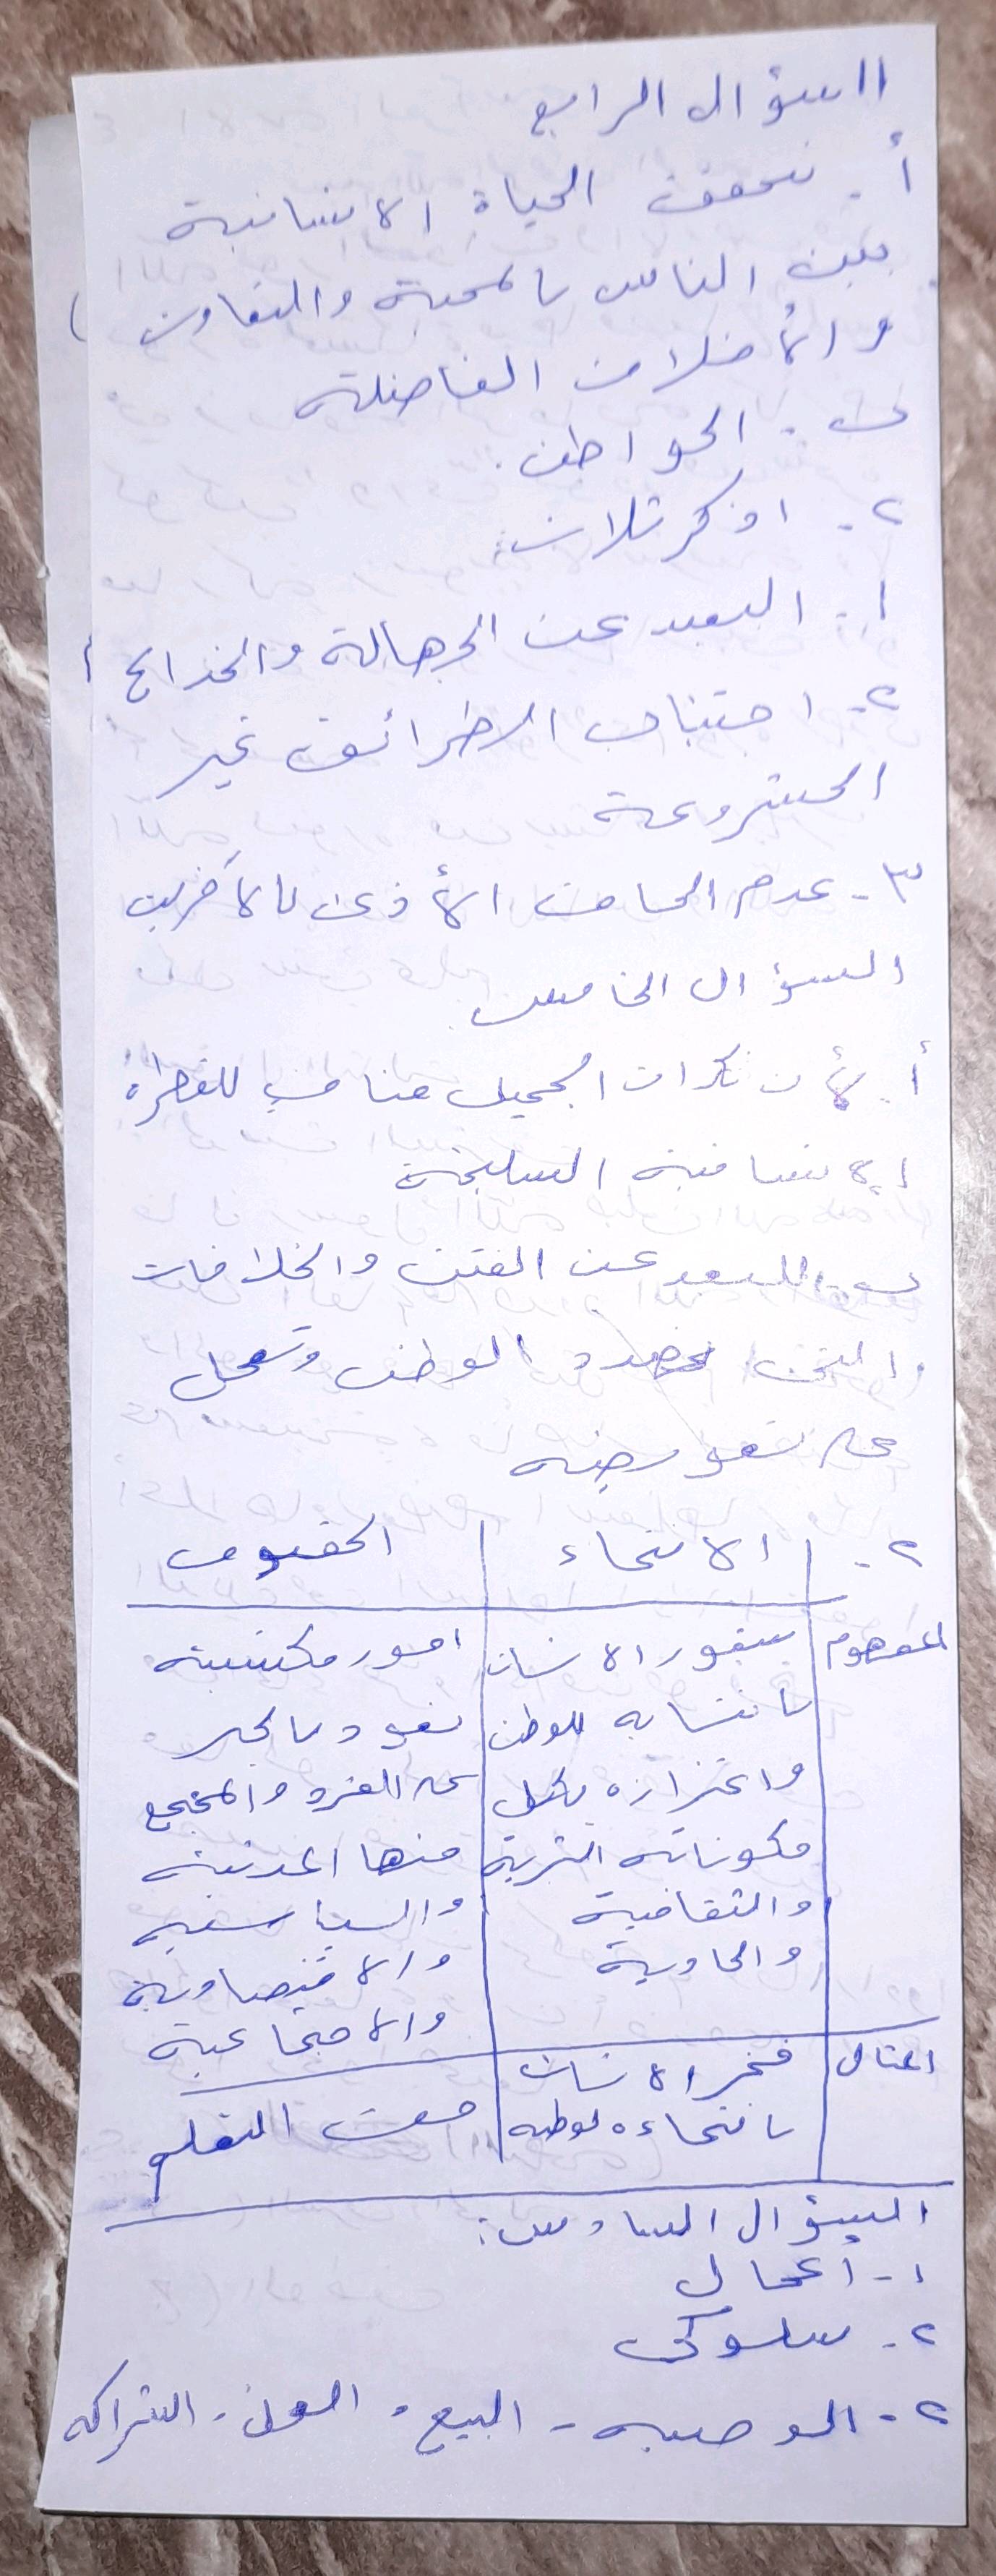 السؤال الرابع
أ. تحقق الحياة الانسانية
بين الناس بالمحبة والتعاون
والأخلاق الفاضلة
ب. المواطن.
٢. اذكر ثلاث:
١. البعد عن الجهالة والخداع
٢. اجتناب الطرائق غير
المشروعة
٣. عدم الحاق الأذى بالآخرين
السؤال الخامس
أ. لأن نكران الجميل مناف للفطرة
الانسانية السليمة
ب. للبعد عن الفتن والخلافات
التي تهدد الوطن وتعمل
على تقويضه
٢. الانتماء الحقوق
المفهوم يشعور الانسان امور مكتسبة
بانتسابه للوطن تعود بالخير
واعتزازه بكل على الفرد والمجتمع
مكوناته البشرية منها المدنية
والثقافية والسياسية
والمادية والاقتصادية
والاجتماعية
المثال فخر الانسان حق التعلم
بانتماءه لوطنه
السؤال السادس:
١- أعمال
٢. سلوكي
٢. الوصية - البيع - الشراكة